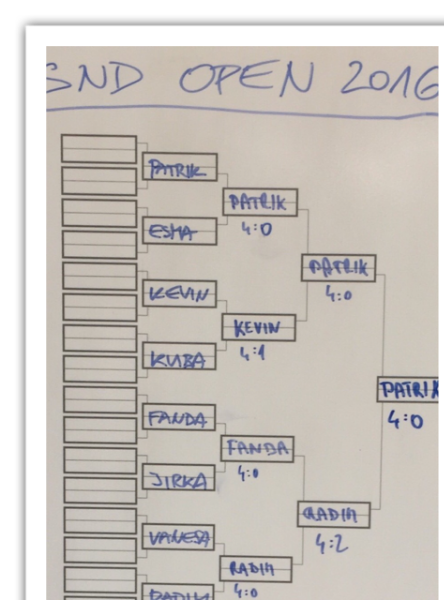 SND OPEN 2016
PATRIK
PATRIK
4:0
ESMA
PATRIK
4:0
KEVIN
KEVIN
4:1
KUBA
PATRIK
4:0
FANDA
FANDA
4:0
JIRKA
RADIM
4:2
VANESA
RADIM
4:0
RADIM